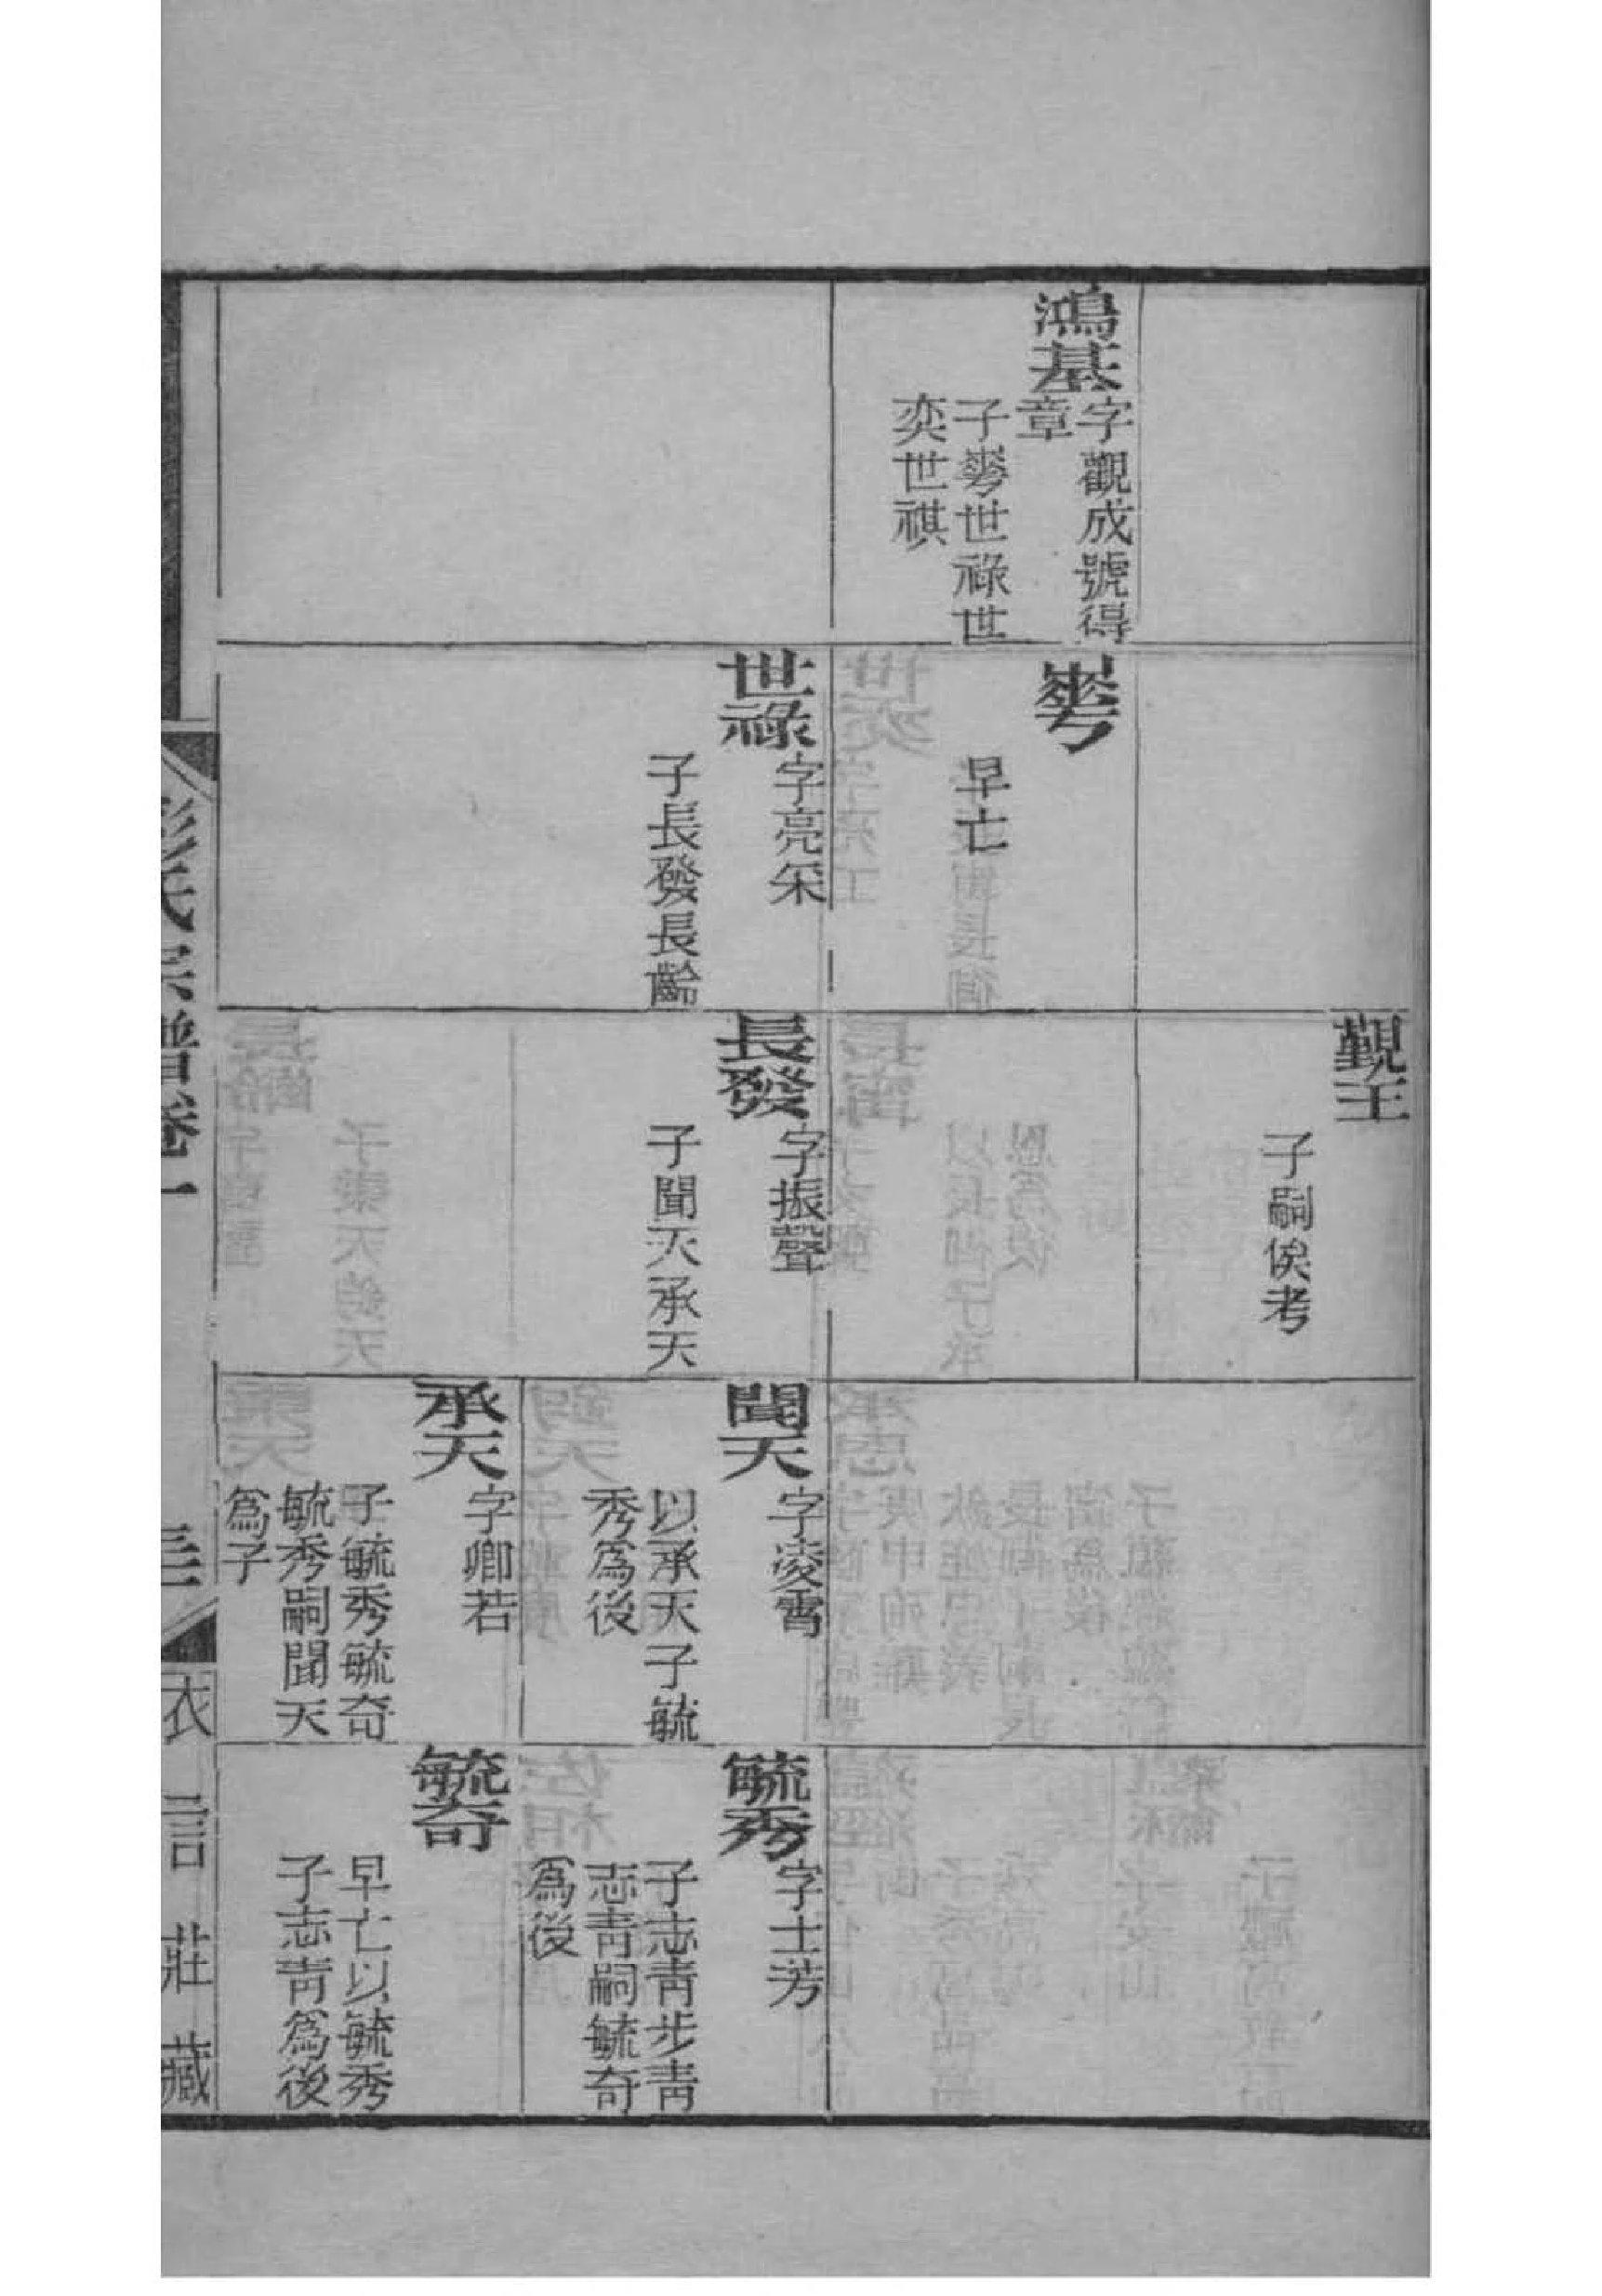 鴻基
字觀成號得
章
子㟧世祿世
奕世祺
早亡
世祿
字亮采
子長發長齡
覲王
子嗣俟考
長發
字振聲
子聞天承天
聞天
字凌霄
以承天子毓
秀爲後
承天
字卿若
子毓秀毓奇
毓秀嗣聞天
爲子
毓秀
字士芳
子志靑步靑
志靑嗣毓奇
爲後
毓奇
早亡以毓秀
子志靑爲後
彭氏宗譜卷一
衣言莊藏